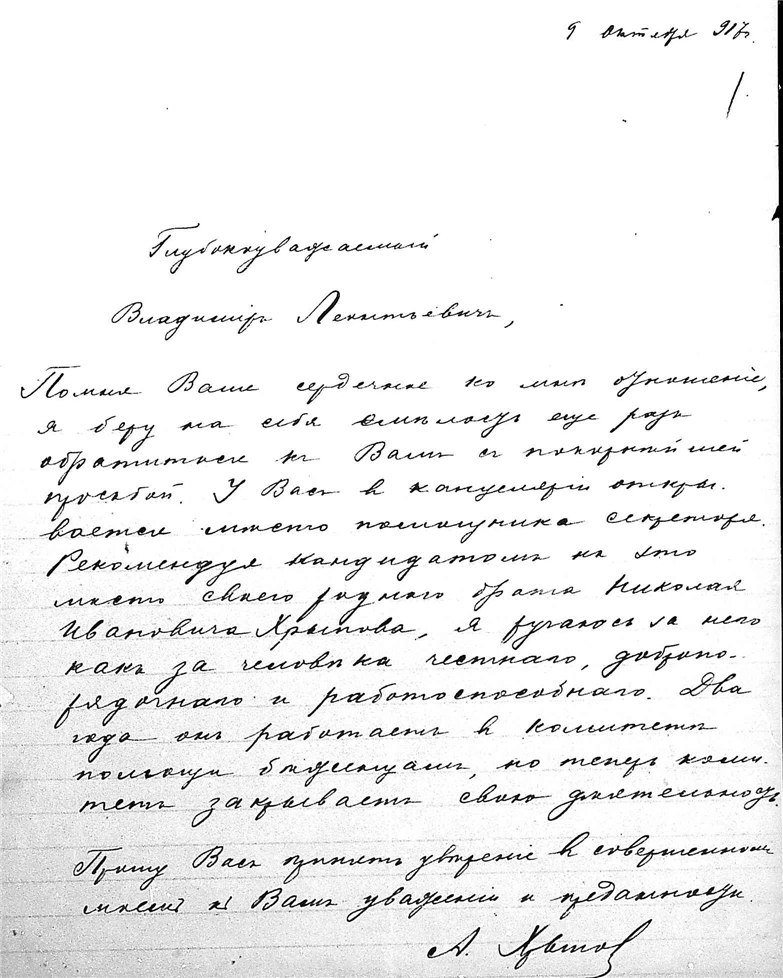 9 октября 917 г.
Глубокоуважаемый
Владимиръ Леонтьевичъ,
Помня Ваше сердечное ко мнѣ отношеніе,
я беру на себя смѣлость еще разъ
обратиться къ Вамъ съ покорнѣйшей
просьбой. У Васъ въ канцеляріи откры-
вается мѣсто помощника секретаря.
Рекомендуя кандидатомъ на это
мѣсто своего родного брата Николая
Ивановича Хрыпова, я ручаюсь за него
какъ за человѣка честнаго, добропо-
рядочнаго и работоспособнаго. Два
года онъ работаетъ въ комитетѣ
помощи бѣженцамъ, но теперь коми-
тетъ закрываетъ свою дѣятельность.
Прошу Васъ принять увѣреніе въ совершенномъ
моемъ къ Вамъ уваженіи и преданности.
А.